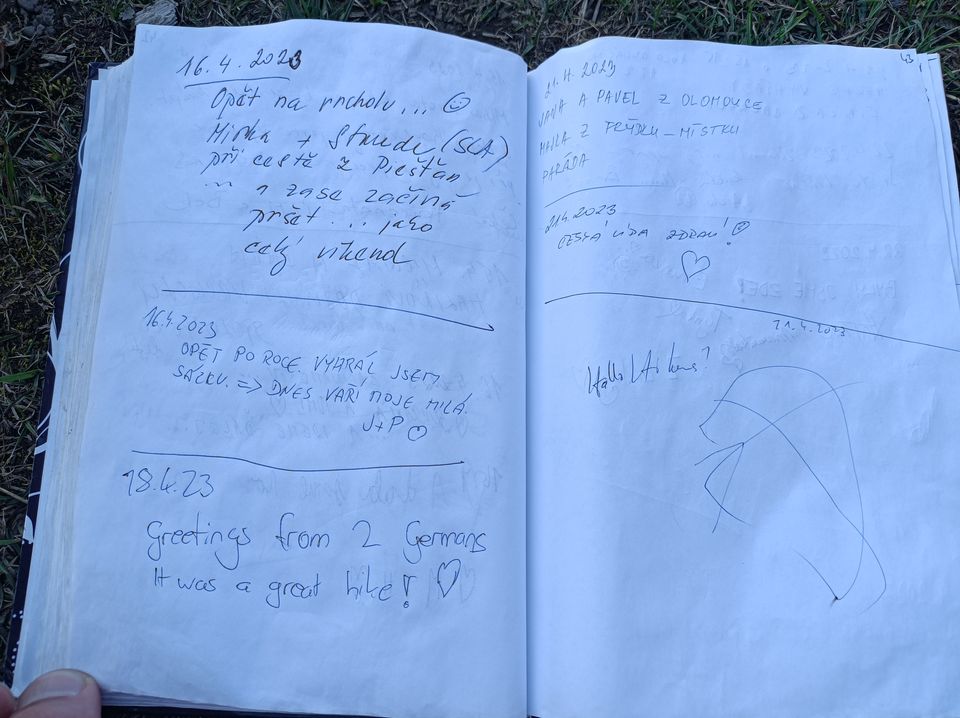 16.4.2023
Opět na vrcholu...
Mirka + (SCA)
při cestě z Piešťan
... a zase začíná
pršet ... jako
celý víkend
16.4.2023
OPĚT PO ROCE. VYHRÁL JSEM
SÁZKU. => DNES VAŘÍ MOJE MILÁ.
J+P
18.4.23
Greetings from 2 Germans
It was a great hike!
43
21.4.2023
JANA A PAVEL Z OLOMOUCE
Z FRÝDKU-MÍSTKU
PARÁDA
21.4.2023
ČESKÁ LÍPA ZDRAVÍ!
21.4.2023